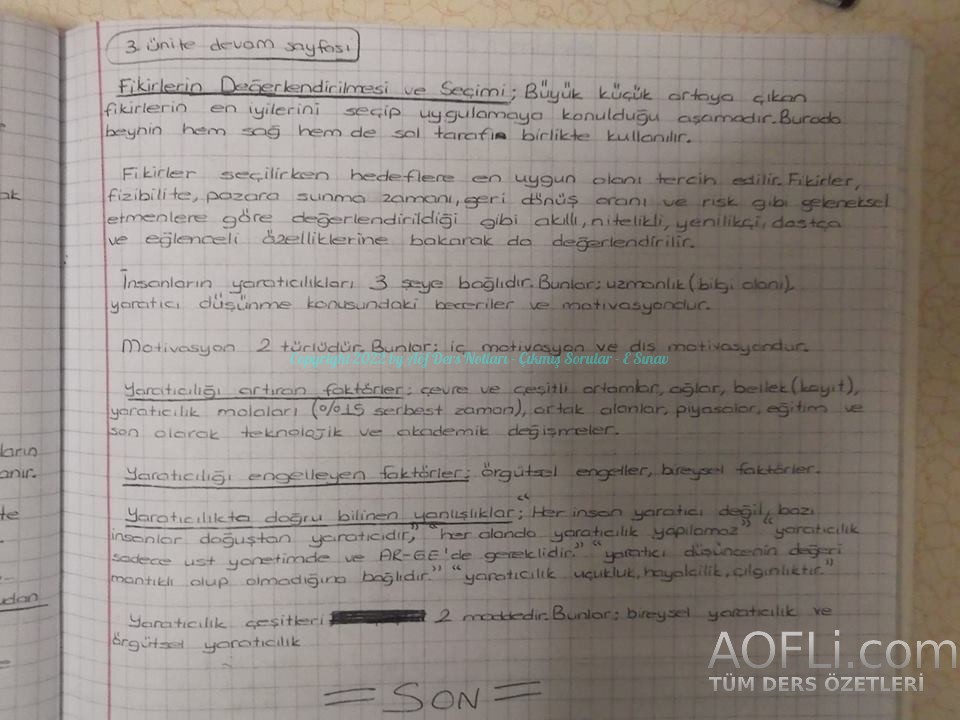 3. ünite devam sayfası
Fikirlerin Değerlendirilmesi ve Seçimi; Büyük küçük ortaya çıkan
fikirlerin en iyilerini seçip uygulamaya konulduğu aşamadır. Burada
beynin hem sağ hem de sol tarafı birlikte kullanılır.
Fikirler seçilirken hedeflere en uygun olanı tercih edilir. Fikirler,
fizibilite, pazara sunma zamanı, geri dönüş oranı ve risk gibi geleneksel
etmenlere göre değerlendirildiği gibi akıllı, nitelikli, yenilikçi, dostça
ve eğlenceli özelliklerine bakarak da değerlendirilir.
İnsanların yaratıcılıkları 3 şeye bağlıdır. Bunlar; uzmanlık (bilgi alanı),
yaratıcı düşünme konusundaki beceriler ve motivasyondur.
Motivasyon 2 türlüdür. Bunlar; iç motivasyon ve dış motivasyondur.
Copyright 2022 by Aöf Ders Notları - Çıkmış Sorular - E Sınav
Yaratıcılığı artıran faktörler; çevre ve çeşitli ortamlar, ağlar, bellek (kayıt),
yaratıcılık molaları (%15 serbest zaman), ortak alanlar, piyasalar, eğitim ve
son olarak teknolojik ve akademik değişmeler.
Yaratıcılığı engelleyen faktörler; örgütsel engeller, bireysel faktörler.
Yaratıcılıkta doğru bilinen yanlışlıklar; "Her insan yaratıcı değil, bazı
insanlar doğuştan yaratıcıdır," "her alanda yaratıcılık yapılamaz" "yaratıcılık
sadece üst yönetimde ve AR-GE'de gereklidir." "yaratıcı düşüncenin değeri
mantıklı olup olmadığına bağlıdır." "yaratıcılık uçukluk, hayalcilik, çılgınlıktır."
Yaratıcılık çeşitleri 2 maddedir. Bunlar; bireysel yaratıcılık ve
örgütsel yaratıcılık
= SON =
AOFLi.com
TÜM DERS ÖZETLERİ